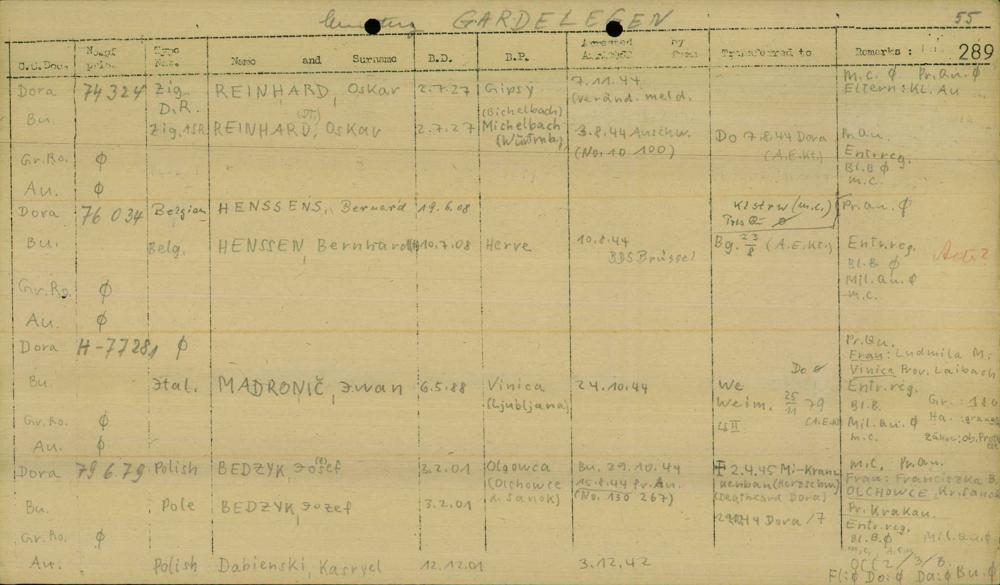 Cemetery GARDELEGEN 55
289
C.C.Docu. No. of pris. Type Nat. Name and Surname B.D. B.P. Arrested by Transferred to Remarks :
Dora 74 324 Zig. D.R. REINHARD, Oskar 2.7.27 Gipsy (Bichelbach) 7.11.44 (veränd. meld. M.C. ∅ Pr.Qu. ∅ Eltern: Kl. Au
Bu. Zig. REINHARD, Oskar 2.7.27 Michelbach 3.8.44 Auschw. (No. 10 100) Do 7.8.44 Dora (A.E.Kt.) Pr.Qu. Entr.reg. Bl.B ∅ m.c.
Gr.Ro. ∅
Au. ∅
Dora 76 034 Belgian HENSSENS, Bernard 19.6.08 (m.c.) Pr.Qu. ∅
Bu. Belg. HENSSEN, Bernhard 10.7.08 Herve 10.8.44 BDS Brüssel Bg. 23/8 (A.E.Kt.) Entr.reg. Bl.B ∅ Mil.Qu. ∅ m.c.
Gr.Ro. ∅
Au. ∅
Dora H-77281 ∅ Pr.Qu. Frau: Ludmila M. Vinica Prov. Laibach
Bu. Ital. MADRONIČ, Iwan 6.5.88 Vinica (Ljubljana) 24.10.44 Do ∅ We Weim. 25/11 79 Entr.reg. Bl.B. Mil.Qu. ∅ m.c.
Gr.Ro. ∅
Au. ∅
Dora 79 679 Polish BEDZYK, Josef 3.2.01 Olgowca (Olchowce Sanok) Bu. 29.10.44 15.8.44 Pr.Qu. (No. 130 267) 2.4.45 (Deathcard Dora) m.c. Pr.Qu. Frau: Franciszka B. OLCHOWCE, Kr. Sanok
Bu. Pole BEDZYK, Jozef 3.2.01 Dora /7 Pr. Krakau. Entr.reg. Bl.B. ∅ Mil.Qu. ∅
Gr.Ro. ∅
Au. Polish Dabienski, Kasryel 12.12.01 3.12.42 OCC 2/3/8.
Fl: ∅ Do: ∅ Da: ∅ Bu. ∅